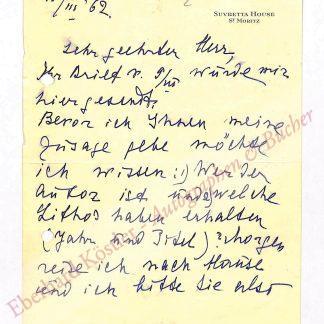 SUVRETTA HOUSE
ST MORITZ
III 62.
Sehr geehrter Herr,
Ihr Brief v. 9/III wurde mir
hiergesendt.
Bevor ich Ihnen meine
Zusage gebe möchte
ich wissen: 1) Wer der
Autor ist und welche
Lithos haben erhalten
(Jahr und Titel)? Morgen
reise ich nach Hause
und ich bitte Sie also
Eberhard Köstler - Autographen & Bücher